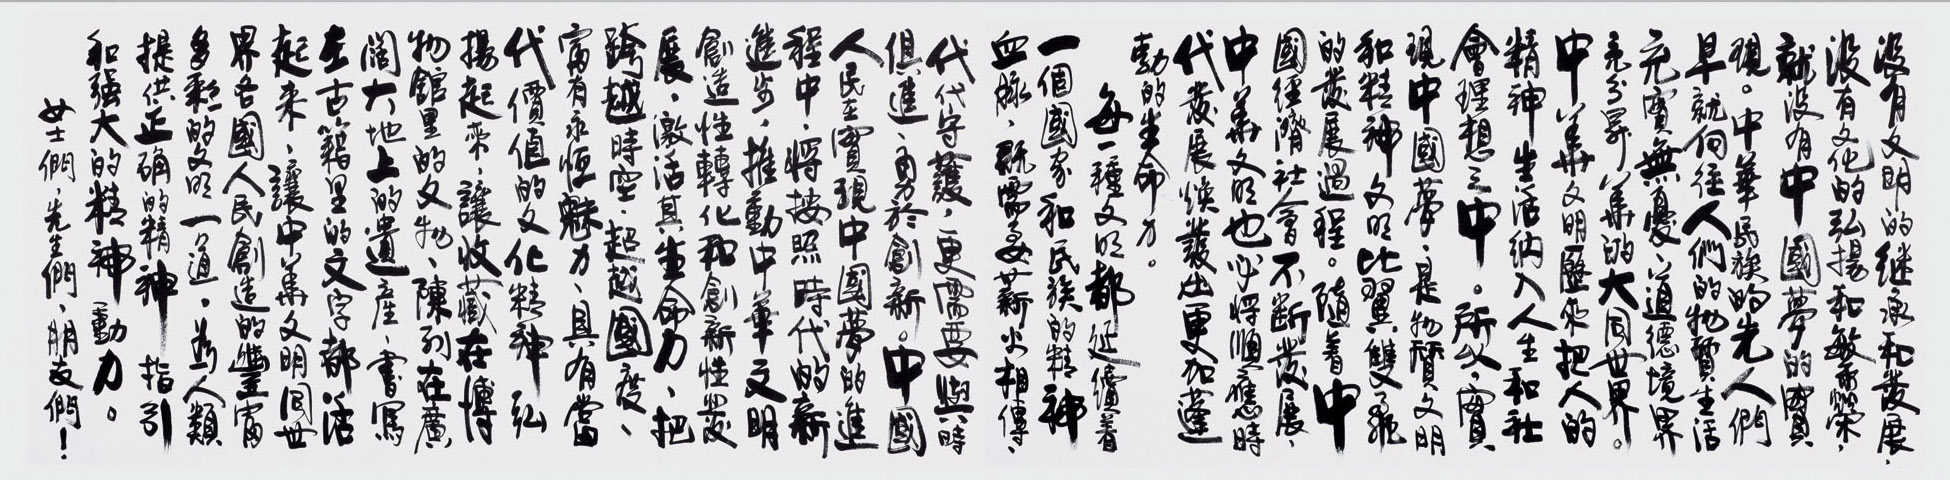 沒有文明的继承和發展，
沒有文化的弘揚和繁榮，
就沒有中國夢的實
現。中華民族的先人們
早就向往人們的物質生活
充實無憂、道德境界
充分昇華的大同世界。
中華文明歷來把人的
精神生活納入人生和社
會理想之中。所以，實
現中國夢，是物質文明
和精神文明比翼雙飛
的發展過程。隨着中
國經濟社會不断發展，
中華文明也必将順應時
代發展焕發出更加蓬
勃的生命力。
每一種文明都延續着
一個國家和民族的精神
血脉，既需要薪火相傳、
代代守護，更需要與時
俱進、勇於創新。中國
人民在實現中國夢的進
程中，将按照時代的新
進步，推動中華文明
創造性轉化和創新性發
展，激活其生命力，把
跨越時空、超越國度、
富有永恒魅力、具有當
代價值的文化精神弘
揚起來，讓收藏在博
物館里的文物、陳列在廣
闊大地上的遺產、書寫
在古籍里的文字都活
起来，讓中華文明同世
界各國人民創造的豐富
多彩的文明一道，為人類
提供正确的精神指引
和强大的精神動力。
女士們、先生們、朋友們！